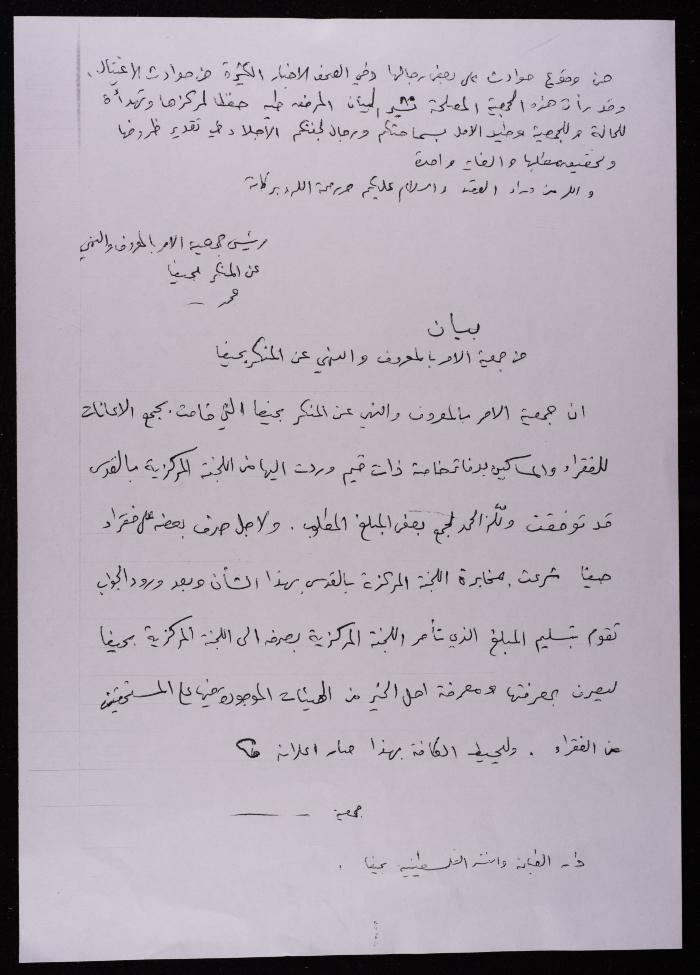 من وقوع حوادث على بعض رجالها وفي الصحف الاخبار الكثيرة عن حوادث الاغتيال.
وقد رأت هذه الجمعية المصلحة نشر البيان المرفق طيه حفظا لمركزها وتهدأة
للحالة وللجمعية وطيد الامل بسماحتكم ورجال لجنتكم الاجلاء في تقدير ظروفها
وتحقيق مطلبها والغاية واحدة
والله من وراء القصد والسلام عليكم ورحمة الله وبركاته
رئيس جمعية الامر بالمعروف والنهي
عن المنكر بحيفا
محمد
بيان
من جمعية الامر بالمعروف والنهي عن المنكر بحيفا
ان جمعية الامر بالمعروف والنهي عن المنكر بحيفا التي قامت بجمع الاعانات
للفقراء والمساكين بدفاتر خاصة ذات قيم وردت اليها من اللجنة المركزية بالقدس
قد توفقت ولله الحمد لجمع بعض المبلغ المطلوب. ولاجل صرف بعضه على فقراء
حيفا شرعت بمخابرة اللجنة المركزية بالقدس بهذا الشأن وبعد ورود الجواب
تقوم بتسليم المبلغ الذي تأمر اللجنة المركزية بصرفه الى اللجنة المركزية بحيفا
ليصرف بمعرفتها ومعرفة اهل الخير من الهيئات الموجودة بحيفا على المستحقين
من الفقراء. وليحيط الكافة بهذا صار اعلانه
جمعية
الفلسطينية بحيفا.